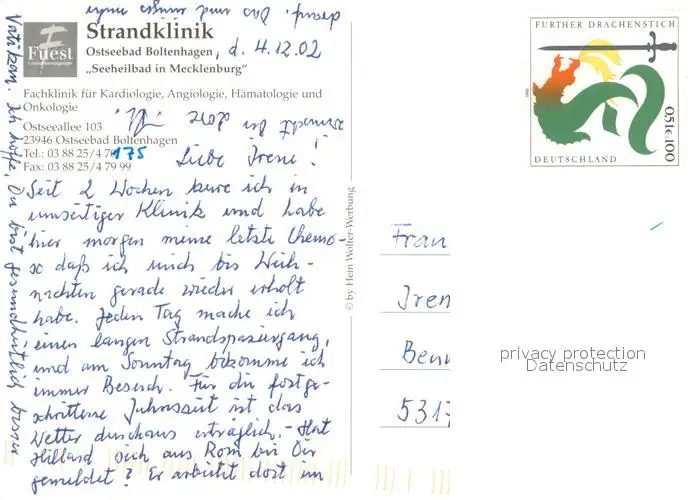 Fuest
Strandklinik
Ostseebad Boltenhagen, d. 4.12.02
„Seeheilbad in Mecklenburg"
Fachklinik für Kardiologie, Angiologie, Hämatologie und
Onkologie
Ostseeallee 103
23946 Ostseebad Boltenhagen
Tel.: 03 88 25/4 7 175
Fax: 03 88 25/4 79 99
Liebe Irene!
Seit 2 Wochen kure ich in
umseitiger Klinik und habe
hier morgen meine letzte Chemo-
so daß ich mich bis Weih-
nachten gerade wieder erholt
habe. Jeden Tag mache ich
einen langen Strandspaziergang,
und am Sonntag bekomme ich
immer Besuch. Für die fortge-
schrittene Jahreszeit ist das
Wetter durchaus erträglich. - Hat
sich aus Rom bei Dir
gemeldet? Er arbeitet dort im
Vatikan. Ich hoffe, Du bist gesundheitlich besser
© by Hein Wolter-Werbung
FURTHER DRACHENSTICH
0,51 € 100
DEUTSCHLAND
Frau
Iren
Benn
privacy protection
Datenschutz